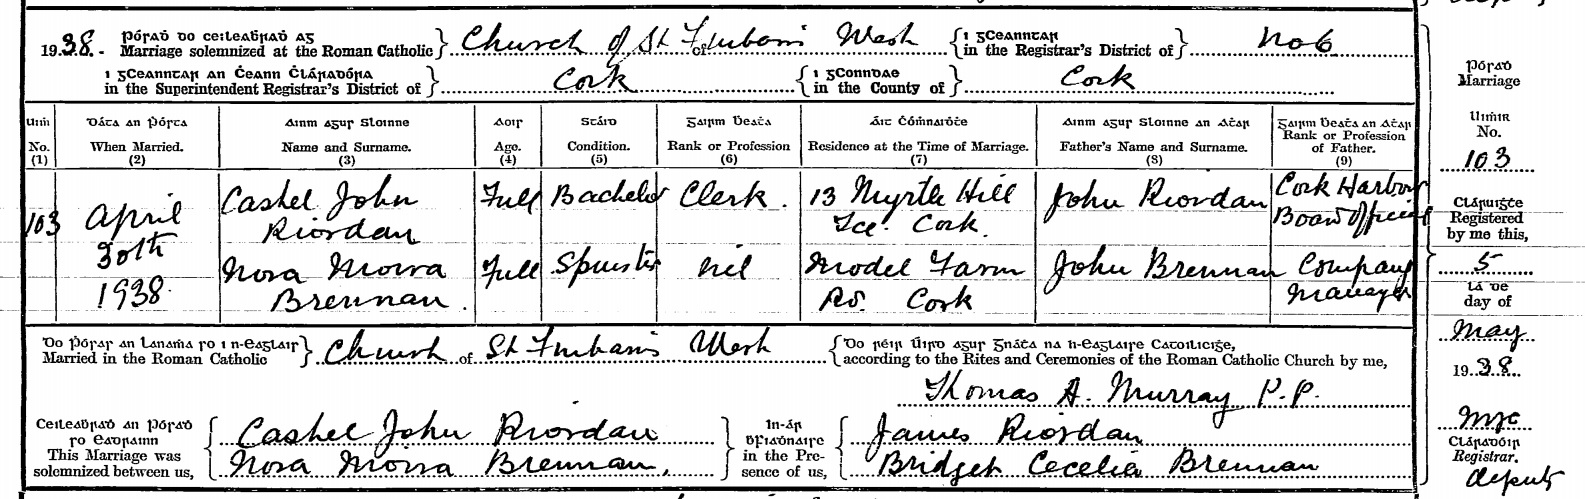 1938. - Pósaḋ do ceileaḃraḋ ag
Marriage solemnized at the Roman Catholic Church of St Finbarr's West
i gCeanntar
in the Registrar's District of No 6
i gCeanntar an Ċeann Ċláraḋóra
in the Superintendent Registrar's District of Cork
i gConndae
in the County of Cork
Uiṁ. Dáta an Ṗósta Ainm agus Sloinne Aois Stáid Gairm Ḃeaṫa Áit Ċóṁnaiḋṫe Ainm agus Sloinne an Aṫar Gairm Ḃeaṫa an Aṫar
No. When Married. Name and Surname. Age. Condition. Rank or Profession Residence at the Time of Marriage. Father's Name and Surname. Rank or Profession of Father.
(1) (2) (3) (4) (5) (6) (7) (8) (9)
103 April 30th 1938.
Cashel John Riordan Full Bachelor Clerk. 13 Myrtle Hill Tce. Cork. John Riordan Cork Harbour Board Official
Nora Moira Brennan. Full Spinster nil Model Farm Rd. Cork John Brennan Company Manager
Do pósaḋ an lánaṁa so i n-eaglais
Married in the Roman Catholic Church of St Finbarr's West
Do réir Úird agus Gnáṫa na h-Eaglaise Catoilicíġe,
according to the Rites and Ceremonies of the Roman Catholic Church by me,
Thomas A. Murray P.P.
Ceileaḃraḋ an Pósaḋ
so eadrainn
This Marriage was
solemnized between us,
Cashel John Riordan
Nora Moira Brennan.
In-ár
ḃfiaḋnaise
in the Pre-
sence of us,
James Riordan
Bridget Cecelia Brennan
Pósaḋ
Marriage
Uiṁir
No.
103
Cláruiġṫe
Registered
by me this,
5
lá de
day of
May
1938.
Cláraḋóir
Registrar.
deputy